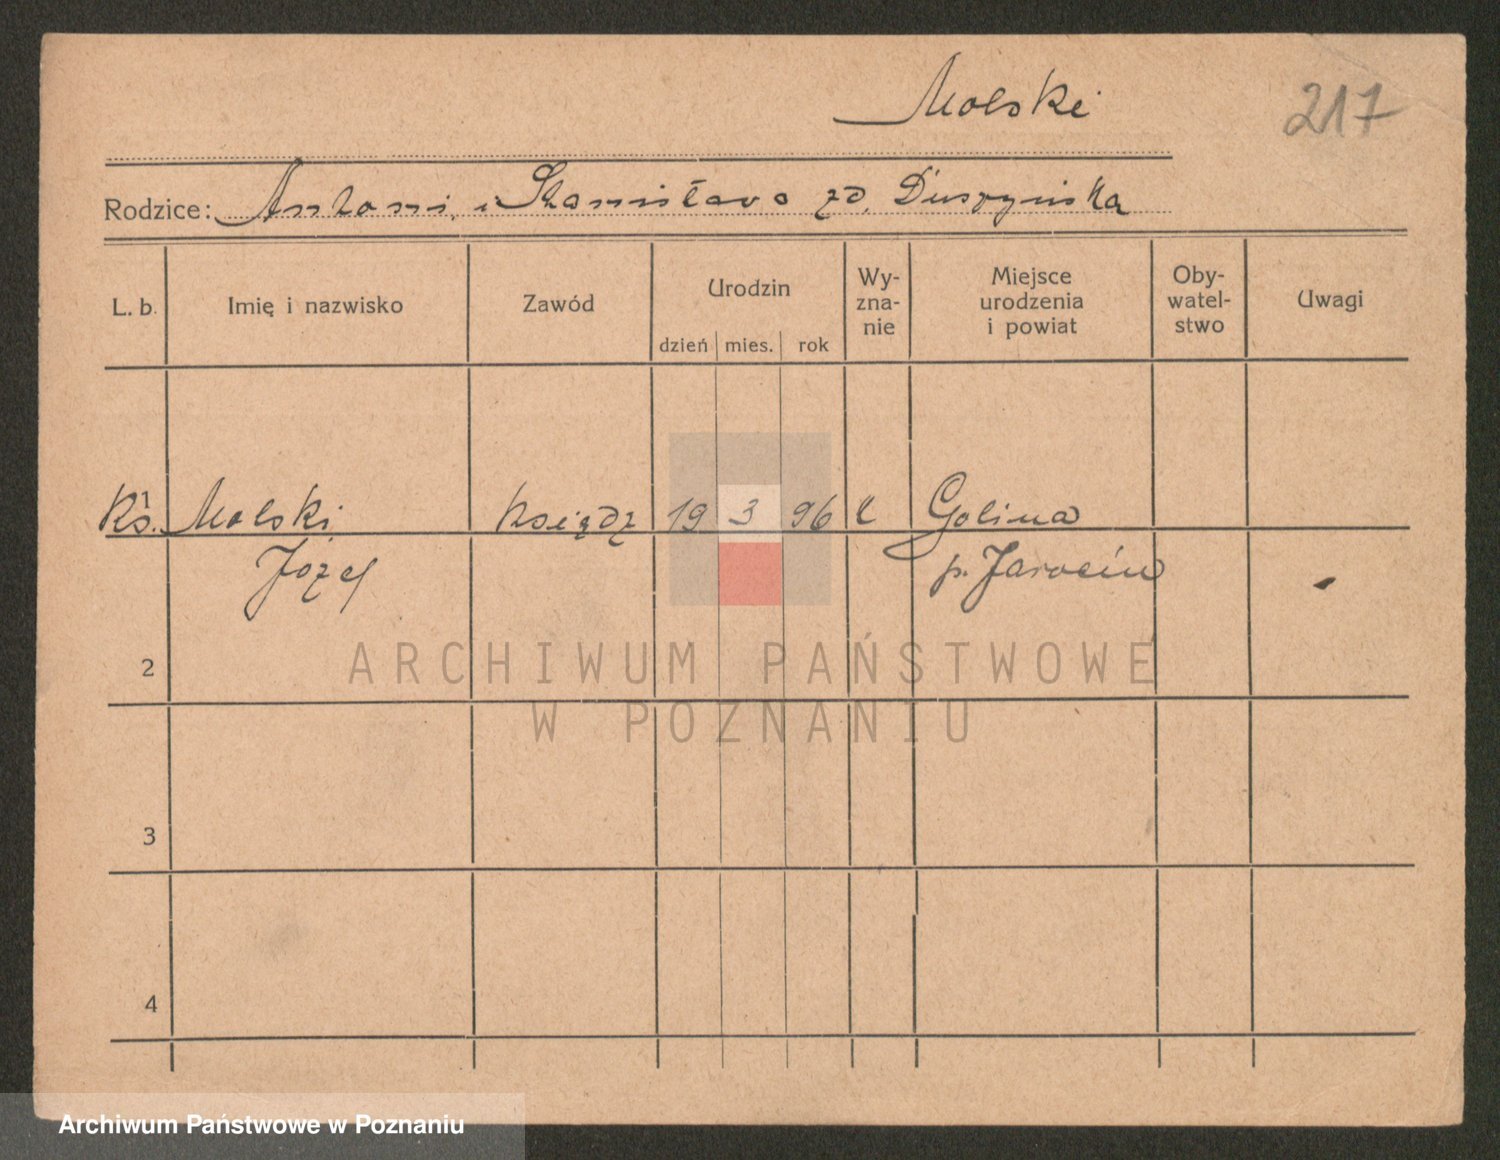 Molski
217
Rodzice: Antoni i Stanisława zd. Duszyńska
L. b. Imię i nazwisko Zawód Urodzin dzień mies. rok Wy-zna-nie Miejsce urodzenia i powiat Oby-watel-stwo Uwagi
1
Ks. Molski Ksiądz 19 3 96 k Golina
Józef p. Jarocin
2
ARCHIWUM PAŃSTWOWE
W POZNANIU
3
4
Archiwum Państwowe w Poznaniu